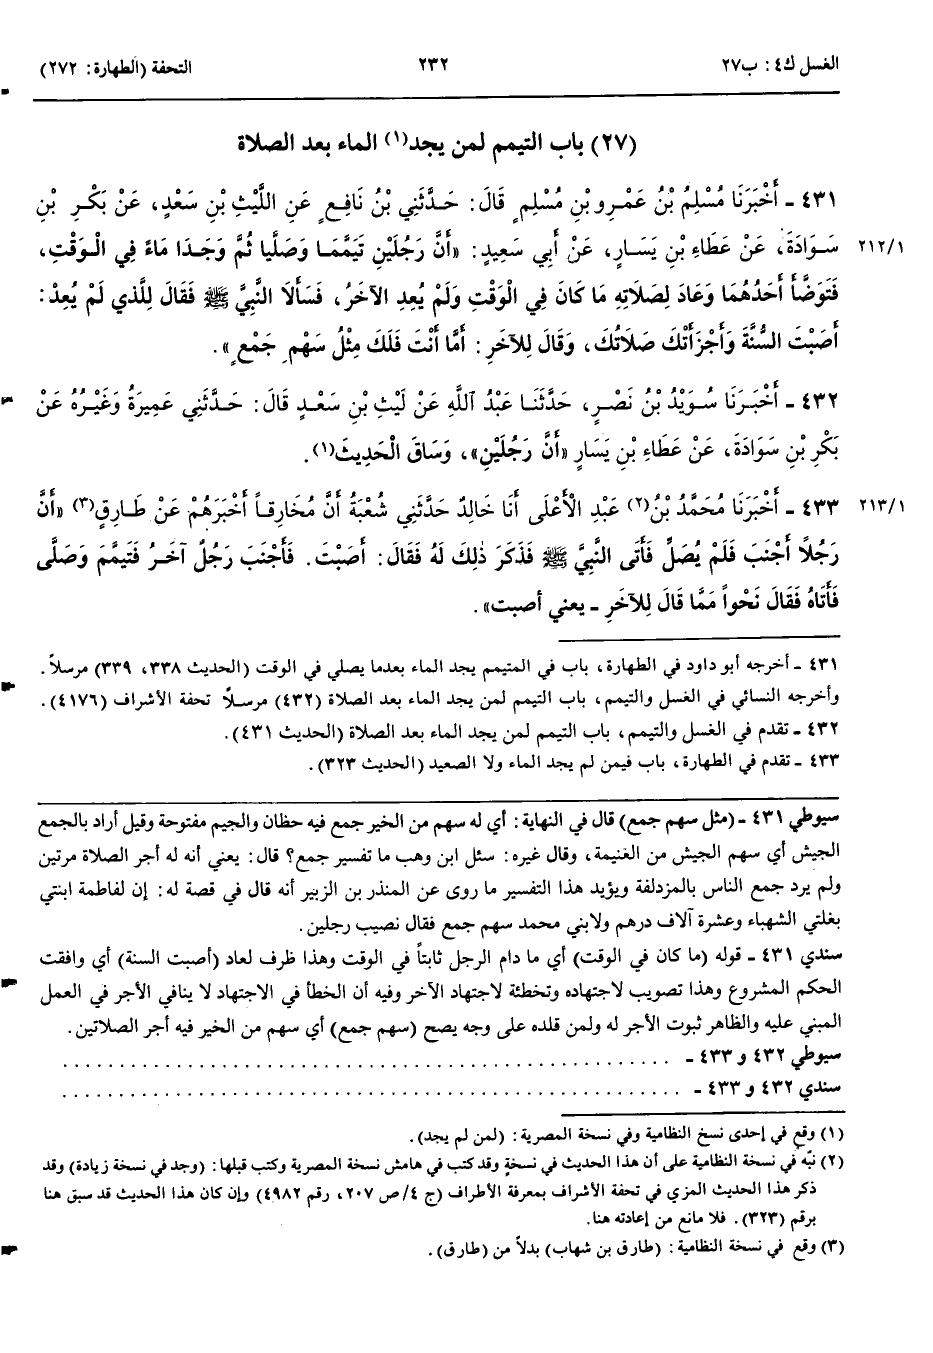 الغسل ك٤: ب٢٧ ٢٣٢ التحفة (الطهارة: ٢٧٢)
(٢٧) باب التيمم لمن يجد(١) الماء بعد الصلاة
٤٣١ ـ أَخْبَرَنَا مُسْلِمُ بْنُ عَمْرِو بْنِ مُسْلِمٍ قَالَ: حَدَّثَنِي بْنُ نَافِعٍ عَنِ اللَّيْثِ بْنِ سَعْدٍ، عَنْ بَكْرِ بْنِ
٢١٢/١ سَوَادَةَ، عَنْ عَطَاءِ بْنِ يَسَارٍ، عَنْ أَبِي سَعِيدٍ: «أَنَّ رَجُلَيْنِ تَيَمَّمَا وَصَلَّيا ثُمَّ وَجَدَا مَاءً فِي الْوَقْتِ،
فَتَوَضَّأَ أَحَدُهُمَا وَعَادَ لِصَلَاتِهِ مَا كَانَ فِي الْوَقْتِ وَلَمْ يُعِدِ الآخَرُ، فَسَأَلَا النَّبِيَّ ﷺ فَقَالَ لِلَّذي لَمْ يُعِدْ:
أَصَبْتَ السُّنَّةَ وَأَجْزَأَتْكَ صَلَاتُكَ، وَقَالَ لِلآخَرِ: أَمَّا أَنْتَ فَلَكَ مِثْلُ سَهْمِ جَمْعٍ».
٤٣٢ ـ أَخْبَرَنَا سُوَيْدُ بْنُ نَصْرٍ، حَدَّثَنَا عَبْدُ اللَّهِ عَنْ لَيْثِ بْنِ سَعْدٍ قَالَ: حَدَّثَنِي عَمِيرَةُ وَغَيْرُهُ عَنْ
بَكْرِ بْنِ سَوَادَةَ، عَنْ عَطَاءِ بْنِ يَسَارٍ «أَنَّ رَجُلَيْنِ»، وَسَاقَ الْحَدِيثَ(١).
٢١٣/١ ٤٣٣ ـ أَخْبَرَنَا مُحَمَّدُ بْنُ(٢) عَبْدِ الْأَعْلَى أَنَا خَالِدٌ حَدَّثَنِي شُعْبَةُ أَنَّ مُخَارِقاً أَخْبَرَهُمْ عَنْ طَارِقٍ(٣) «أَنَّ
رَجُلاً أَجْنَبَ فَلَمْ يُصَلِّ فَأَتَى النَّبِيَّ ﷺ فَذَكَرَ ذٰلِكَ لَهُ فَقَالَ: أَصَبْتَ. فَأَجْنَبَ رَجُلٌ آخَرُ فَتَيَمَّمَ وَصَلَّى
فَأَتَاهُ فَقَالَ نَحْواً مَمَّا قَالَ لِلآخَرِ ـ يعني أصبت».
٤٣١ ـ أخرجه أبو داود في الطهارة، باب في المتيمم يجد الماء بعدما يصلي في الوقت (الحديث ٣٣٨، ٣٣٩) مرسلاً.
وأخرجه النسائي في الغسل والتيمم، باب التيمم لمن يجد الماء بعد الصلاة (٤٣٢) مرسلاً تحفة الأشراف (٤١٧٦).
٤٣٢ ـ تقدم في الغسل والتيمم، باب التيمم لمن يجد الماء بعد الصلاة (الحديث ٤٣١).
٤٣٣ ـ تقدم في الطهارة، باب فيمن لم يجد الماء ولا الصعيد (الحديث ٣٢٣).
سيوطي ٤٣١ ـ (مثل سهم جمع) قال في النهاية: أي له سهم من الخير جمع فيه حظان والجيم مفتوحة وقيل أراد بالجمع
الجيش أي سهم الجيش من الغنيمة، وقال غيره: سئل ابن وهب ما تفسير جمع؟ قال: يعني أنه له أجر الصلاة مرتين
ولم يرد جمع الناس بالمزدلفة ويؤيد هذا التفسير ما روى عن المنذر بن الزبير أنه قال في قصة له: إن لفاطمة ابنتي
بغلتي الشهباء وعشرة آلاف درهم ولابني محمد سهم جمع فقال نصيب رجلين.
سندي ٤٣١ ـ قوله (ما كان في الوقت) أي ما دام الرجل ثابتاً في الوقت وهذا ظرف لعاد (أصبت السنة) أي وافقت
الحكم المشروع وهذا تصويب لاجتهاده وتخطئة لاجتهاد الآخر وفيه أن الخطأ في الاجتهاد لا ينافي الأجر في العمل
المبني عليه والظاهر ثبوت الأجر له ولمن قلده على وجه يصح (سهم جمع) أي سهم من الخير فيه أجر الصلاتين.
سيوطي ٤٣٢ و ٤٣٣ ـ . . . . . . . . . . . . . . . . . . . . . . . . . . . . . .
سندي ٤٣٢ و ٤٣٣ ـ . . . . . . . . . . . . . . . . . . . . . . . . . . . . . .
(١) وقع في إحدى نسخ النظامية وفي نسخة المصرية: (لمن لم يجد).
(٢) نبّه في نسخة النظامية على أن هذا الحديث في نسخةٍ وقد كتب في هامش نسخة المصرية وكتب قبلها: (وجد في نسخة زيادة) وقد
ذكر هذا الحديث المزي في تحفة الأشراف بمعرفة الأطراف (ج ٤/ص ٢٠٧، رقم ٤٩٨٢) وإن كان هذا الحديث قد سبق هنا
برقم (٣٢٣). فلا مانع من إعادته هنا.
(٣) وقع في نسخة النظامية: (طارق بن شهاب) بدلاً من (طارق).